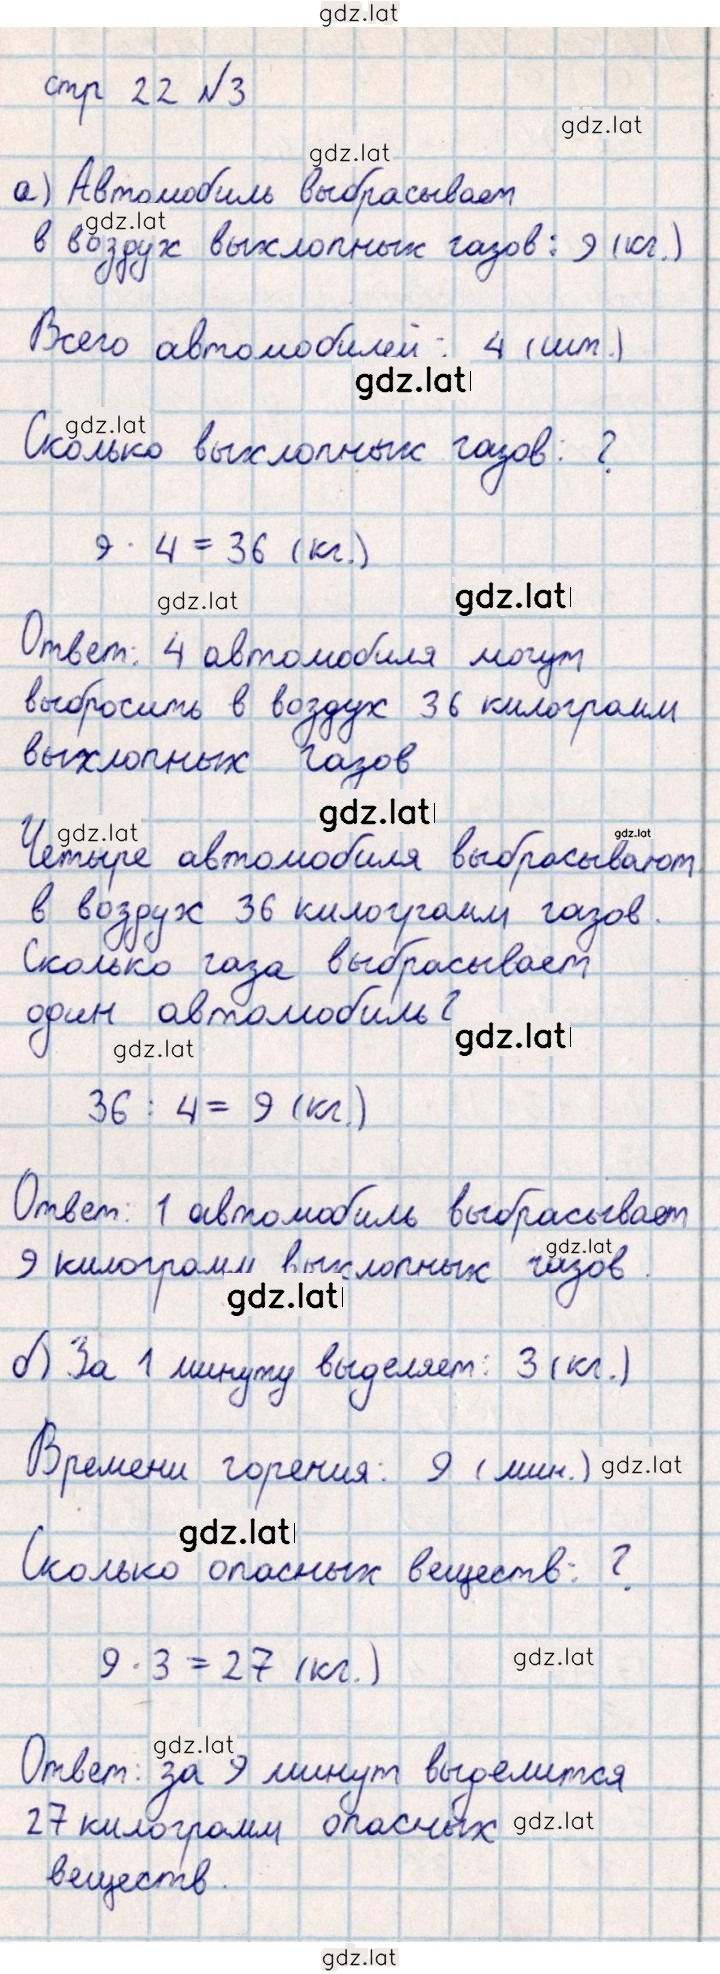 gdz.lat
стр 22 №3
gdz.lat
gdz.lat
а) Автомобиль выбрасывает
gdz.lat
в воздух выхлопных газов: 9 (кг.)
Всего автомобилей: 4 (шт.)
gdz.lat
gdz.lat
Сколько выхлопных газов: ?
9 · 4 = 36 (кг.)
gdz.lat
gdz.lat
Ответ: 4 автомобиля могут
выбросить в воздух 36 килограмм
выхлопных газов
gdz.lat
gdz.lat
gdz.lat
Четыре автомобиля выбрасывают
в воздух 36 килограмм газов.
Сколько газа выбрасывает
один автомобиль?
gdz.lat
gdz.lat
36 : 4 = 9 (кг.)
Ответ: 1 автомобиль выбрасывает
gdz.lat
9 килограмм выхлопных газов.
gdz.lat
б) За 1 минуту выделяет: 3 (кг.)
Времени горения: 9 (мин.)
gdz.lat
gdz.lat
Сколько опасных веществ: ?
9 · 3 = 27 (кг.)
gdz.lat
gdz.lat
Ответ: за 9 минут выделится
27 килограмм опасных
gdz.lat
веществ.
gdz.lat